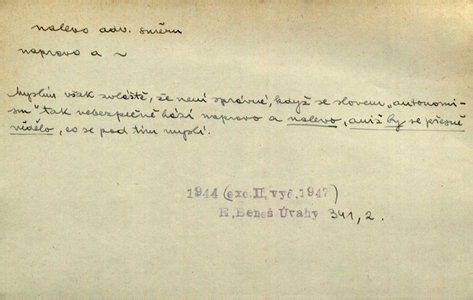 nalevo adv. směru
napravo a ~
Myslím však zvláště, že není správné, když se slovem „autonomi-
sm“ tak nebezpečně hází napravo a nalevo, aniž by se přesně
vědělo, co se pod tím myslí.
1944 (exc. II. vyd. 1947)
E. Beneš Úvahy 341, 2.